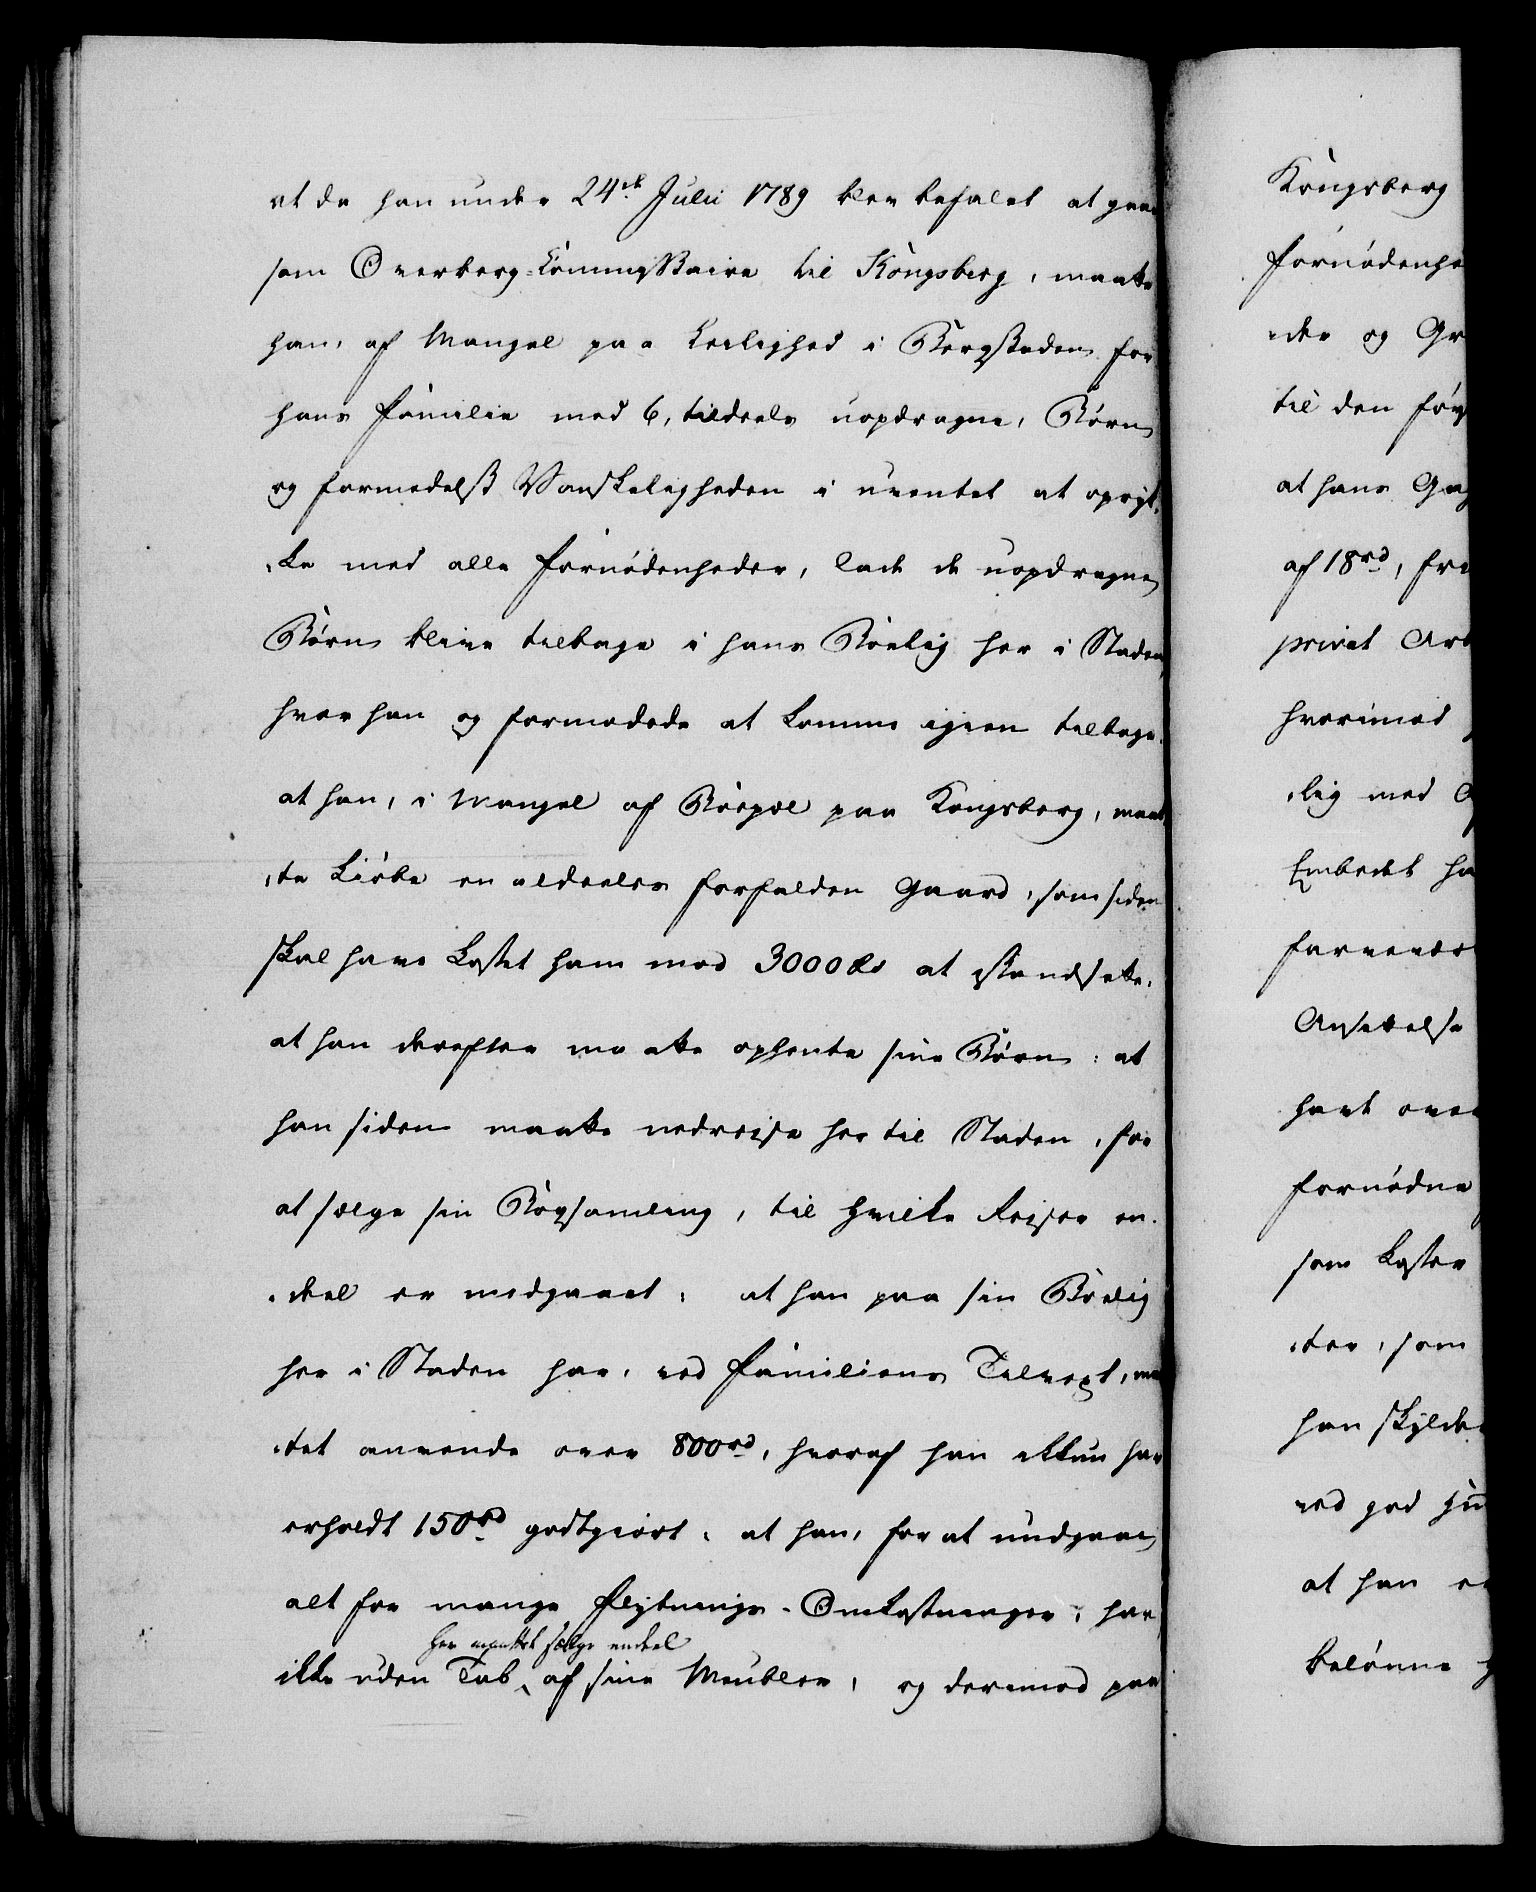 at da han under 24de Julii 1789 blev befalet at gaae
som Overberg-Commissaire til Kongsberg, maatte
han, af Mangel paa Leilighed i Bergstaden for
hans Familie med 6, tildeels uopdragne, Børn
og formedelst Vanskeligheden i uventet at opryk-
ke med alle Fornødenheder, lade de uopdragne
Børn blive tilbage i hans Boelig her i Staden,
hvor han og formodede at komme igien tilbage.
at han, i Mangel af Boepæl paa Kongsberg, maat
te kiøbe en aldeeles forfalden Gaard, som siden
skal have kostet ham med 3000 Rd at istandsette.
at han derefter maatte ophente sine Børn: at
han siden maatte nedreise her til Staden, for
at sælge sin Bogsamling, til hvilke Reiser en-
deel er medgaaet: at han paa sin Boelig
her i Staden har, ved Familiens Tilvext, maa
tet anvende over 800rd, hvoraf han ikkun har
erholdt 150rd godtgiort: at han, for at undgaae
alt for mange Flytnings-Omkostninger, har
her maattet sælge endeel
ikke uden Tab af sine Meubler, og derimod paa
Kongsberg
Fornødenhe
der og Gr
til den
at hans Gag
af 18rd, fra
privat Arb
hvorimod
lig med
Embedet ha
Ansettelse
havt over
fornødne
som koster
ter, som
han skylde
ved god
at han
belønne